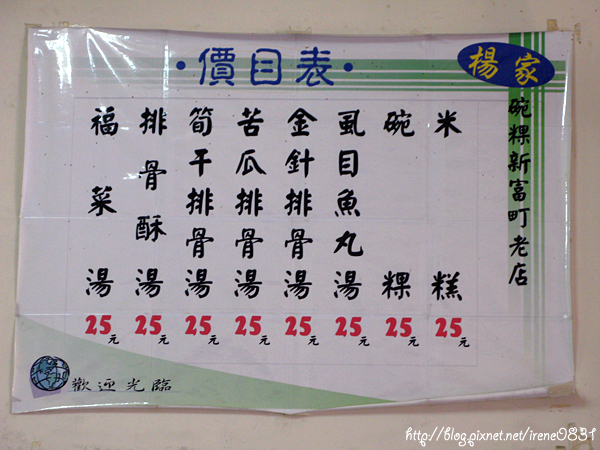 價目表
楊家
碗粿新富町老店
米糕 25元
碗粿 25元
虱目魚丸湯 25元
金針排骨湯 25元
苦瓜排骨湯 25元
筍干排骨湯 25元
排骨酥湯 25元
福菜湯 25元
歡迎光臨
http://blog.pixnet.net/irene0831